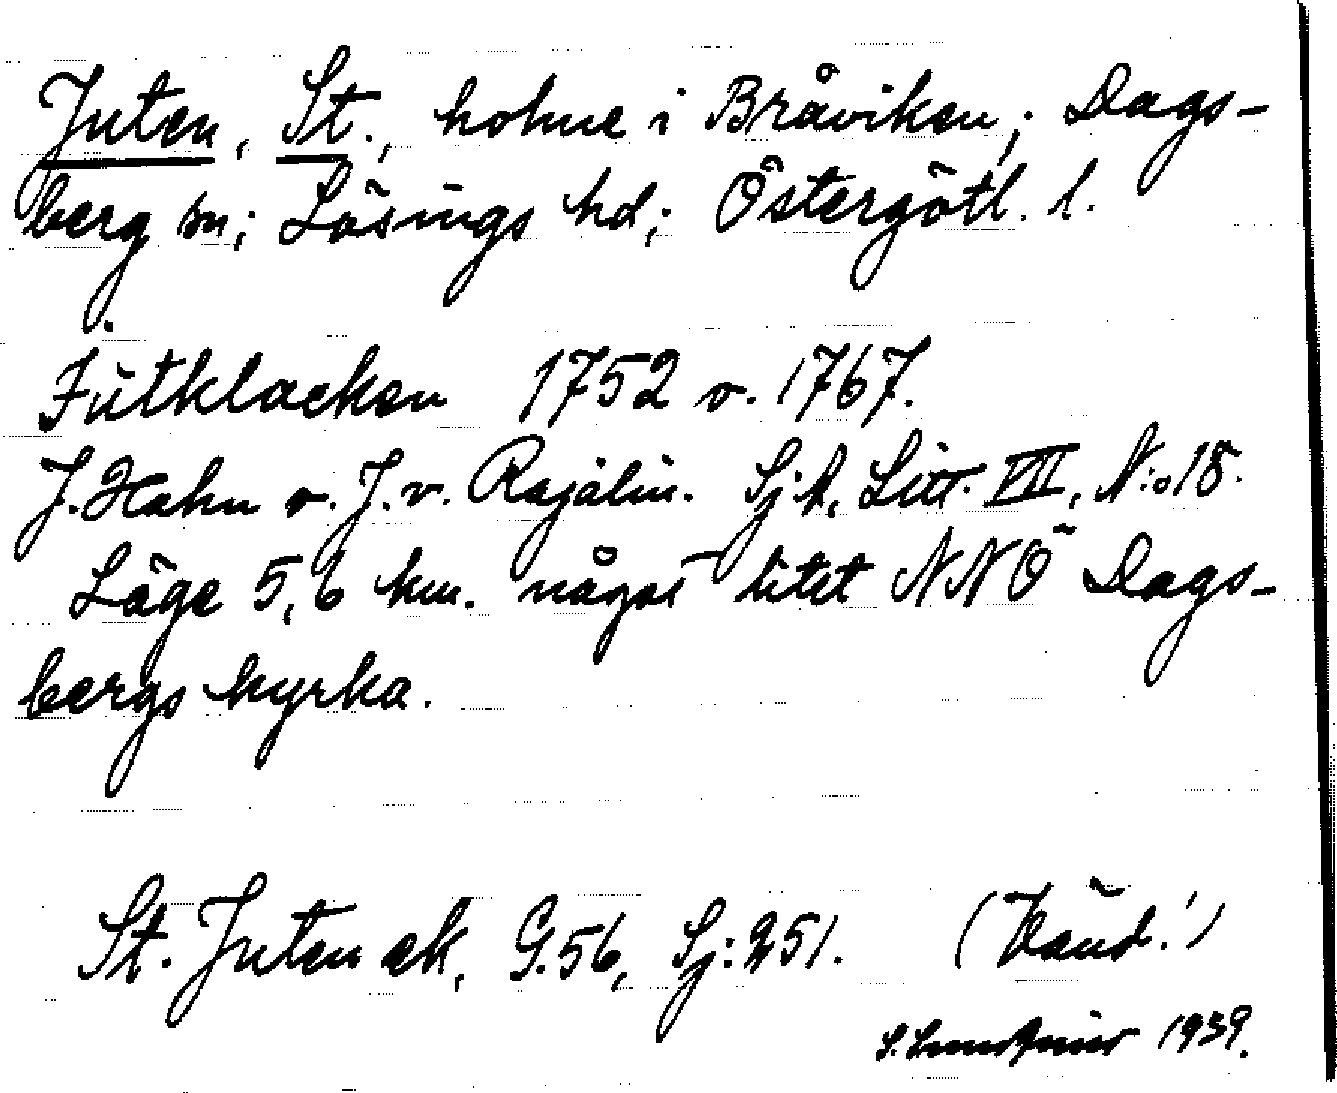 Juten, St., holme i Bråviken; Dags-
berg sn; Lösings hd; Östergötl. l.
Jütklacken 1752 o. 1767.
J. Hahn o. J. v. Rajalin. Sj.k. Litt. VIII, N:o 18.
Läge 5,6 km. något litet NNÖ Dags-
bergs kyrka.
St. Juten ek. G.56, Sj: 251. (Vänd!)
S. 1939.